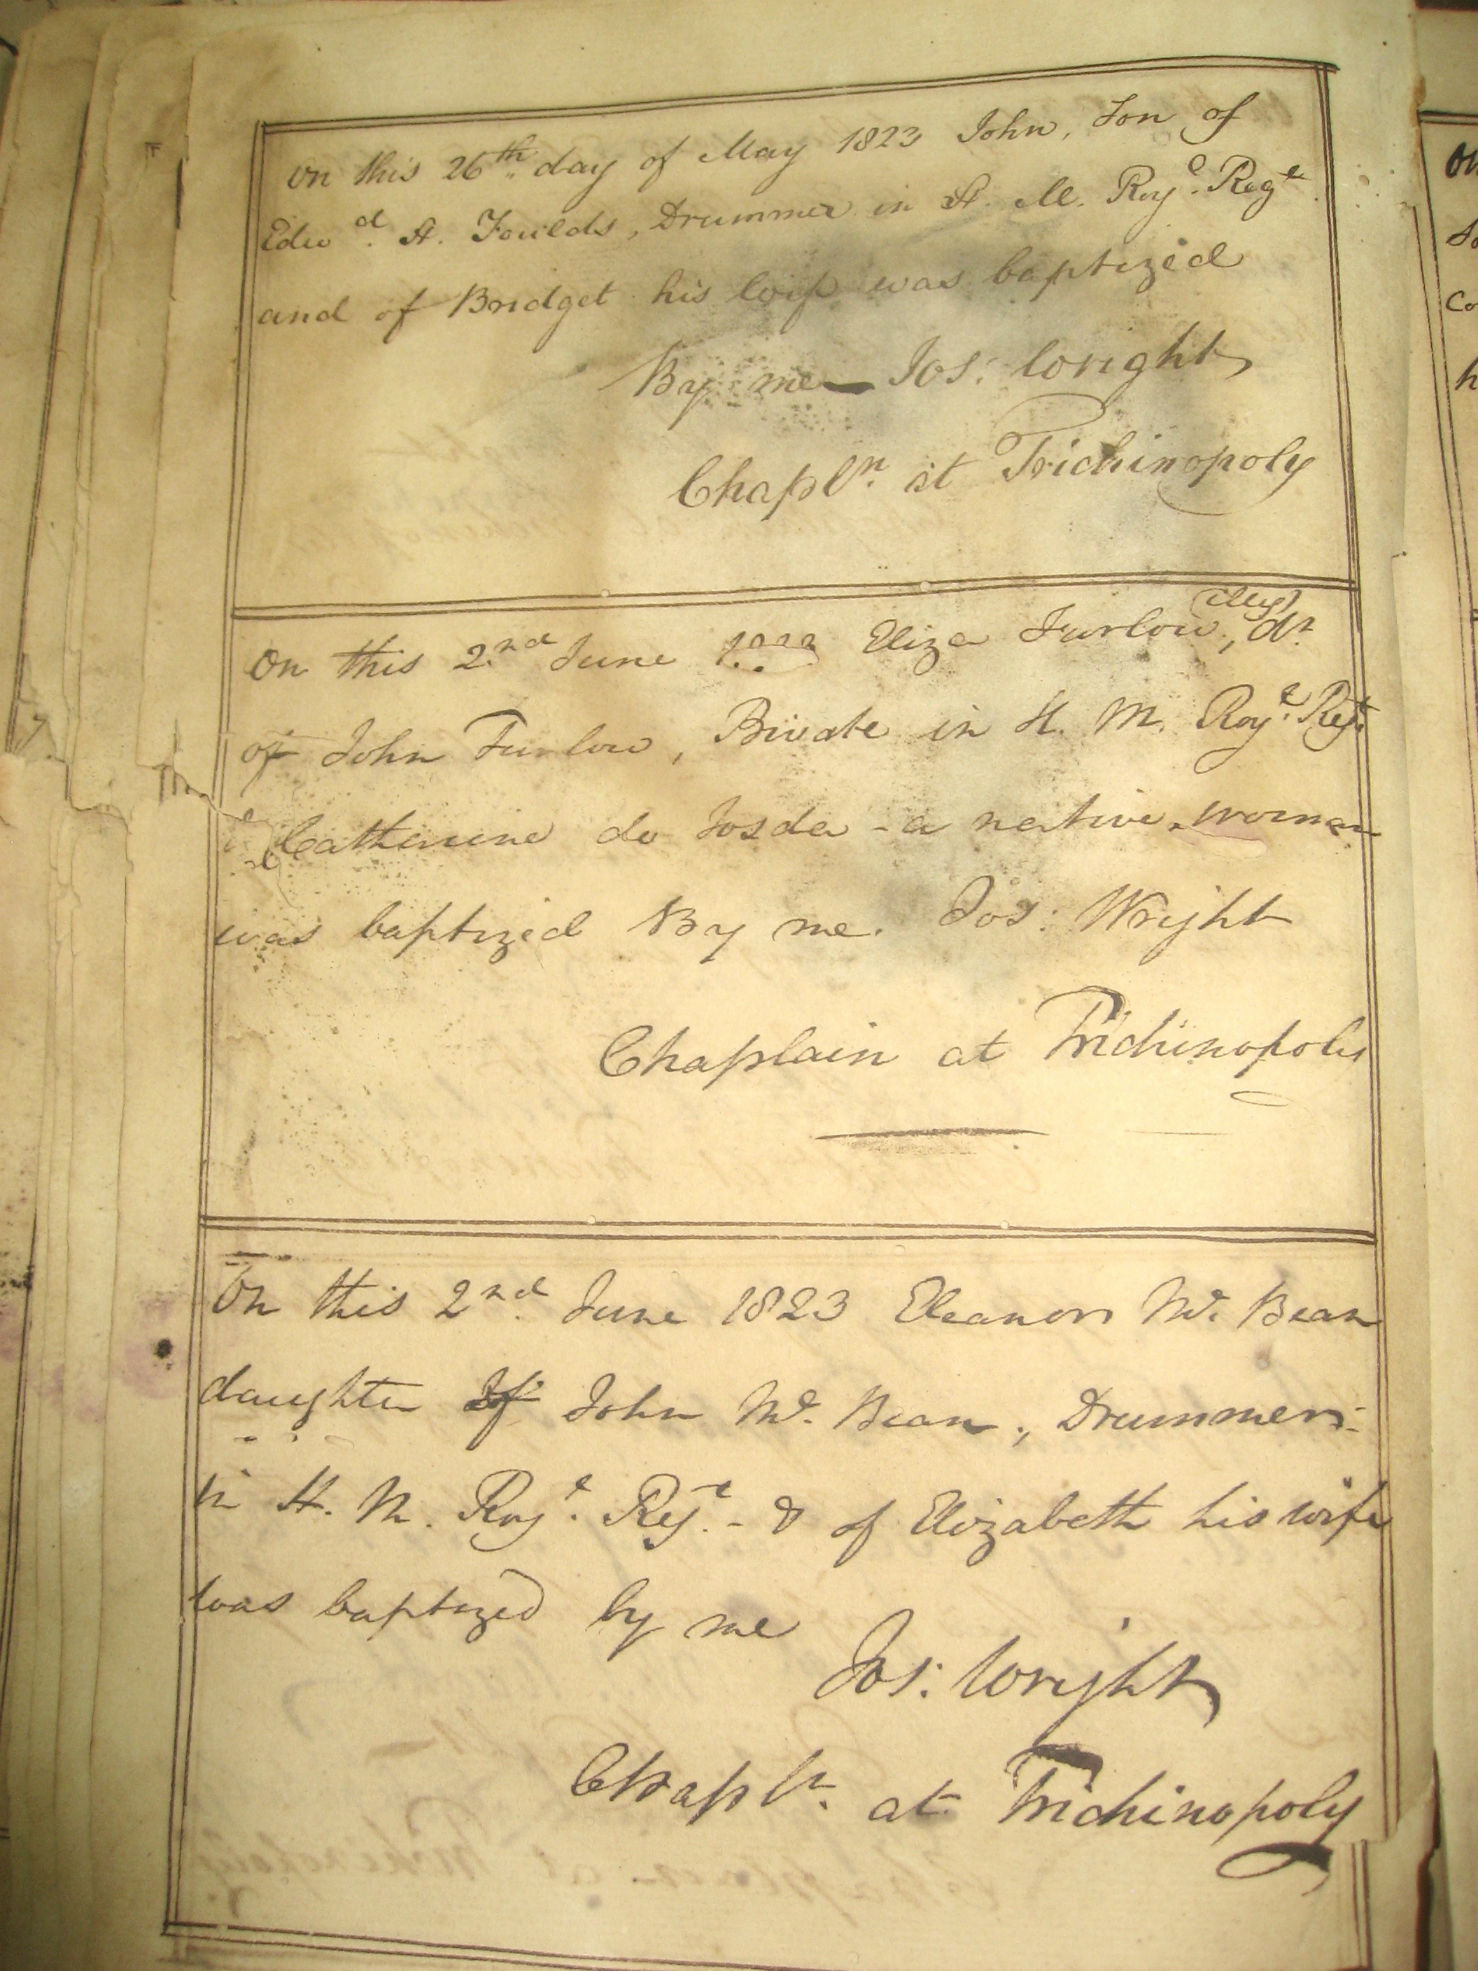 On this 26th. day of May 1823 John, Son of
Edwd. A. Foulds, Drummer in H. M. Royl. Regt.
and of Bridget his wife was baptized
By me — Jos: Wright
Chapln. at Trichinopoly
On this 2.nd June Eliza Furlow, (illeg) dr.
of John Furlow, Private in H. M. Royl. Regt.
& Catherine de - a native woman
was baptized By me. Jos: Wright
Chaplain at Trichinopoly
On this 2nd. June 1823 Eleanor Mc. Bean
daughter of John Mc. Bean, Drummer
in H. M. Royl. Regt. - & of Elizabeth his wife
was baptized by me
Jos: Wright
Chapln. at Trichinopoly
On